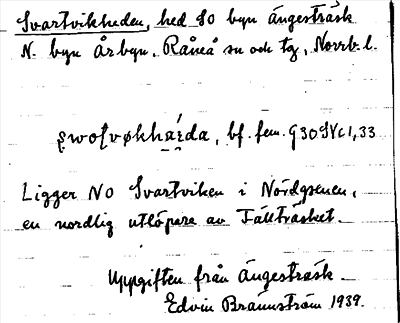 Svartvikheden, hed SO byn Ängesträsk
N. byn Årbyn, Råneå sn och tg, Norrb. l.
bf. fem. G30SVc1,33
Ligger NO Svartviken i
en nordlig utlöpare av Fällträsket.
Uppgiften från Ängesträsk
Edvin Brännström 1939.